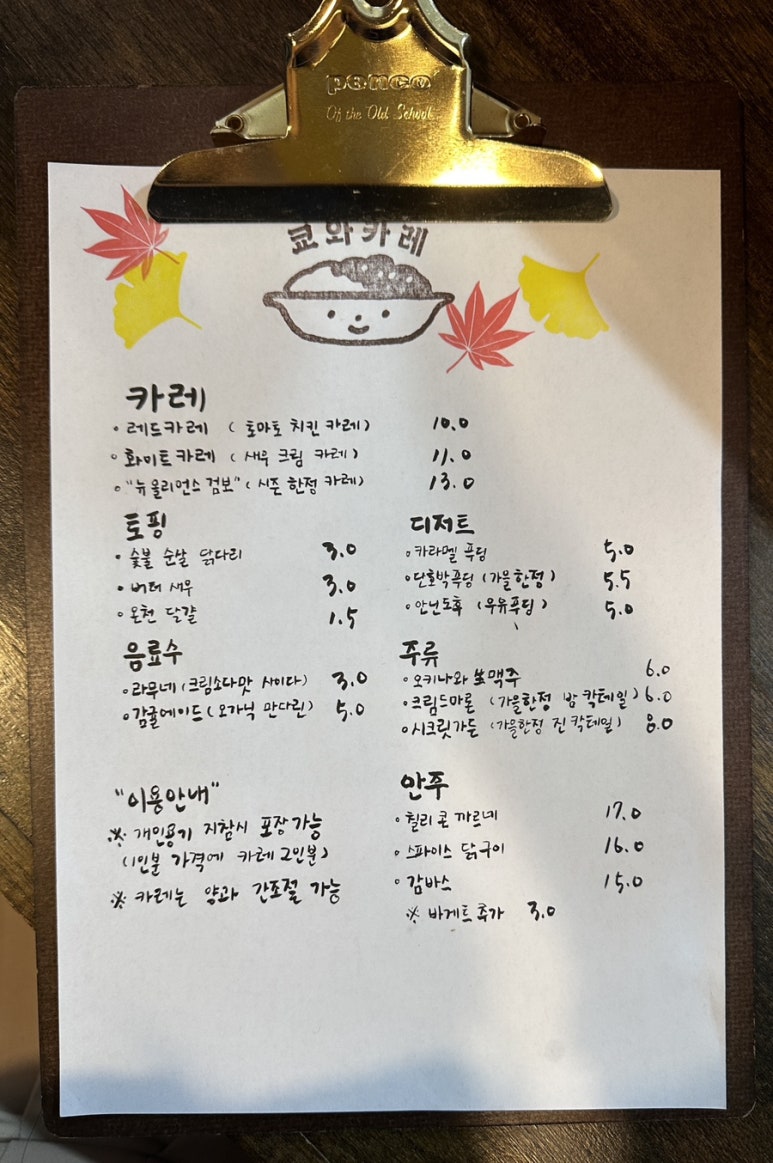 penco
Of the Old School
쿄와카레
카레
• 레드카레 ( 토마토 치킨 카레) 10.0
• 화이트카레 ( 새우 크림 카레) 11.0
• "뉴올리언스 검보" ( 시즌 한정 카레) 13.0
토핑
• 숯불 순살 닭다리 3.0
• 버터 새우 3.0
• 온천 달걀 1.5
디저트
• 카라멜 푸딩 5.0
• 단호박푸딩 (가을한정) 5.5
• 안닌도후 (우유푸딩) 5.0
음료수
• 라무네 (크림소다맛 사이다) 3.0
• 감귤에이드 ( 오가닉 만다린) 5.0
주류
• 오키나와 生맥주 6.0
• 크림드마론 (가을한정 밤 칵테일) 6.0
• 시크릿가든 (가을한정 진 칵테일) 8.0
"이용안내"
※ 개인용기 지참시 포장가능
(1인분 가격에 카레 2인분)
※ 카레는 약과 간조절 가능
안주
• 칠리 콘 까르네 17.0
• 스파이스 닭구이 16.0
• 감바스 15.0
※ 바게트추가 3.0